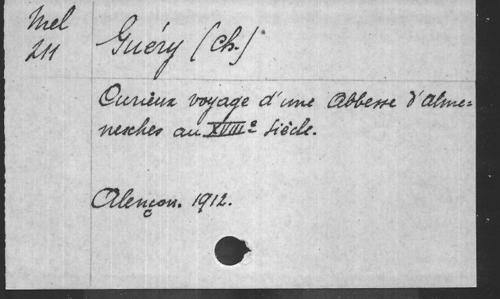 Mel
211
Guéry (Ch.)
Curieux voyage d'une Abbesse d'Alme=
nesches au XVIIIe Siècle.
Alençon. 1912.